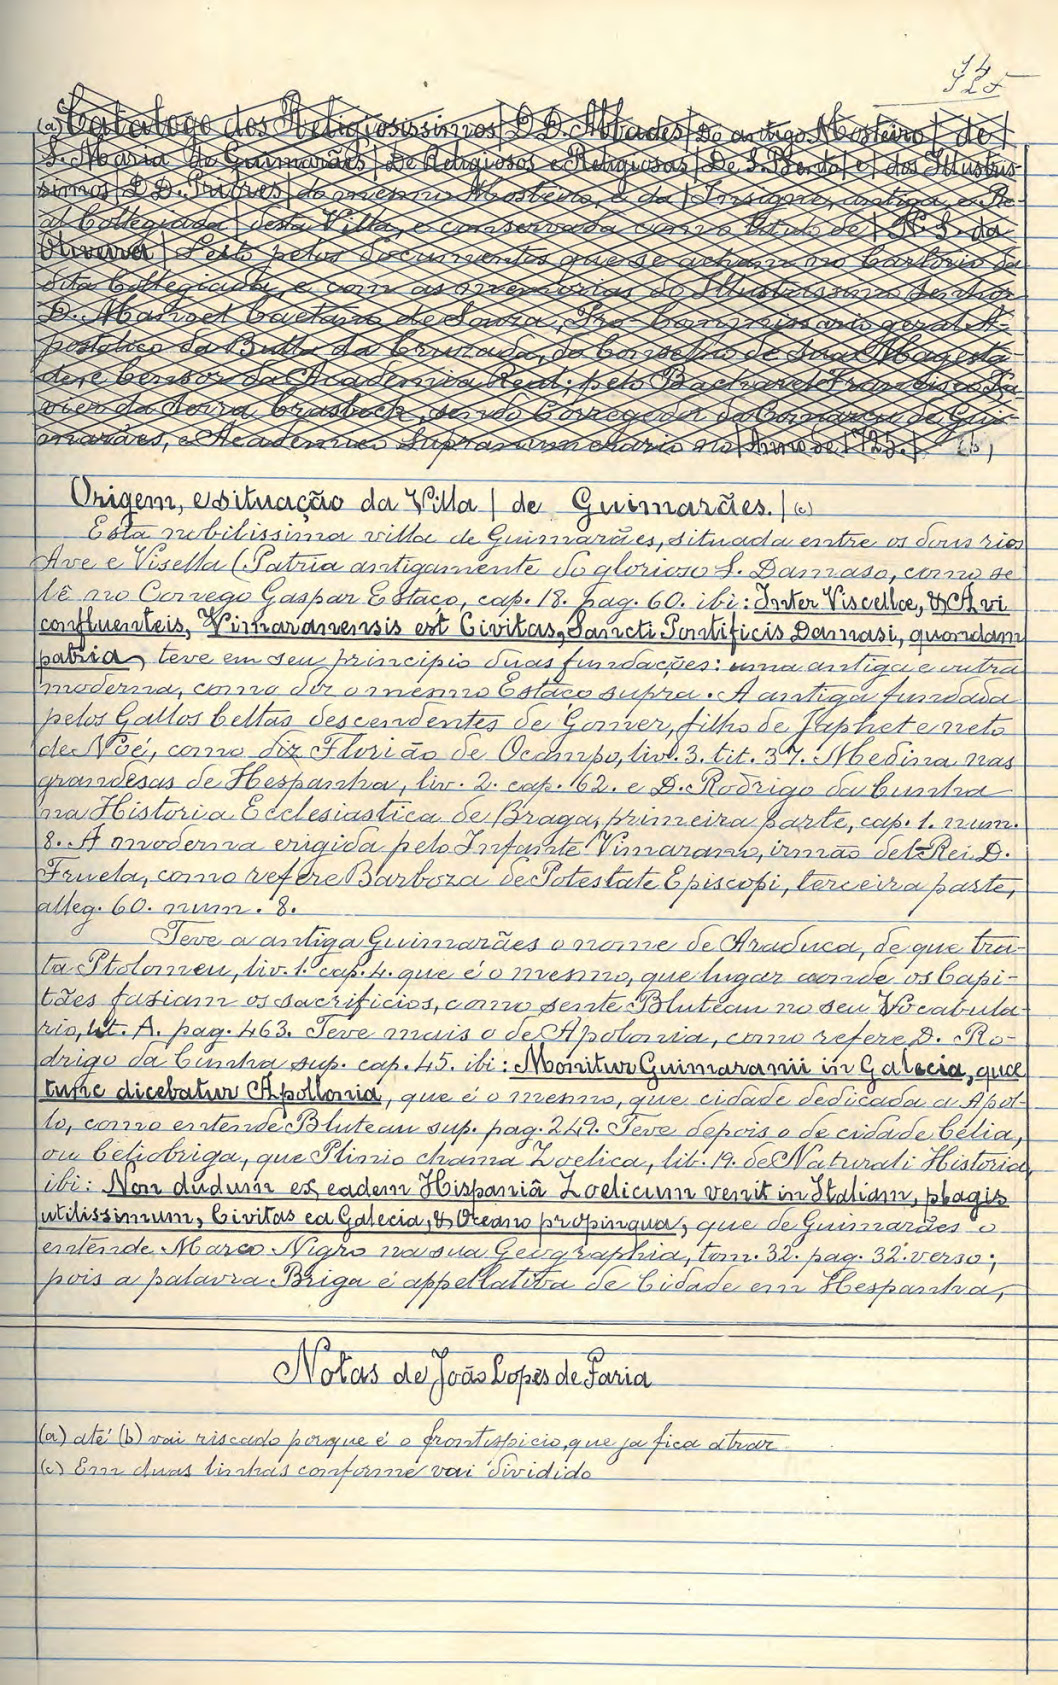 14
125
(a) Catalogo dos Religiosissimos | D D. Abbades | Do antigo Mosteiro | de |
S. Maria de Guimarães | De Religiosos e Religiosas | De S. Bento | e | dos Illustris-
simos | D D. Priores | do mesmo Mosteiro, e da | Insigne, antiga, e Re-
al Collegiada | desta Villa, e conservada com o titulo de | N. S. da
Oliveira | Feito pelos documentos que se acham no Cartorio da
dita Collegiada, e com as memorias do Illustrissimo Senhor
D. Manoel Caetano de Souza, Pro-Commissario geral A-
postolico da Bulla da Cruzada, do Conselho de Sua Magesta-
de, e Censor da Academia Real; pelo Bacharel Francisco Xa-
vier da Serra Crasbeck, sendo Corregedor da Comarca de Gui-
marães, e Academico Supranumerario no | Anno de 1723. | (b)
Origem, e situação da Villa | de Guimarães. | (c)
Esta nobilissima villa de Guimarães, situada entre os dous rios
Ave e Visella (Patria antigamente do glorioso S. Damaso, como se
lê no Conego Gaspar Estaço, cap. 18. pag. 60. ibi: Inter Viscellæ, & Avi
confluenteis, Vimaranensis est Civitas, Sancti Pontificis Damasi, quondam
patria, teve em seu principio duas fundações: uma antiga e outra
moderna, como diz o mesmo Estaço supra. A antiga fundada
pelos Gallos Celtas descendentes de Gomer, filho de Japhet e neto
de Noé, como diz Florião de Ocampo, liv. 3. tit. 37. Medina nas
grandesas de Hespanha, liv. 2. cap. 62. e D. Rodrigo da Cunha
na Historia Ecclesiastica de Braga, primeira parte, cap. 1. num.
8. A moderna erigida pelo Infante Vimarano, irmão del-Rei D.
Fruela, como refere Barboza de Potestate Episcopi, terceira parte,
alleg. 60. num. 8.
Teve a antiga Guimarães o nome de Araduca, de que tra-
ta Ptolomeu, liv. 1. cap. 4. que é o mesmo, que lugar aonde os Capi-
tães fasiam os sacrificios, como sente Bluteau no seu Vocabula-
rio, lit. A. pag. 463. Teve mais o de Apolonia, como refere D. Ro-
drigo da Cunha sup. cap. 45. ibi: Monitur Guimaranii in Galecia, quæ
tunc dicebatur Apollonia, que é o mesmo, que cidade dedicada a Apol-
lo, como entende Bluteau sup. pag. 249. Teve depois o de cidade Célia,
ou Celiobriga, que Plinio chama Zoelica, lib. 19. de Naturali Historia,
ibi: Non dudum ex eadem Hispaniâ Zoelicum venit in Italiam, plagis
utilissimum, Civitas ea Galecia, & Oceano propinqua, que de Guimarães o
entende Marco Nigro na sua Geographia, tom. 32. pag. 32. verso;
pois a palavra Briga é appellativa de Cidade em Hespanha,
Notas de João Lopes de Faria
(a) até (b) vai riscado porque é o frontispicio, que ja fica atraz
(c) Em duas linhas conforme vai dividido